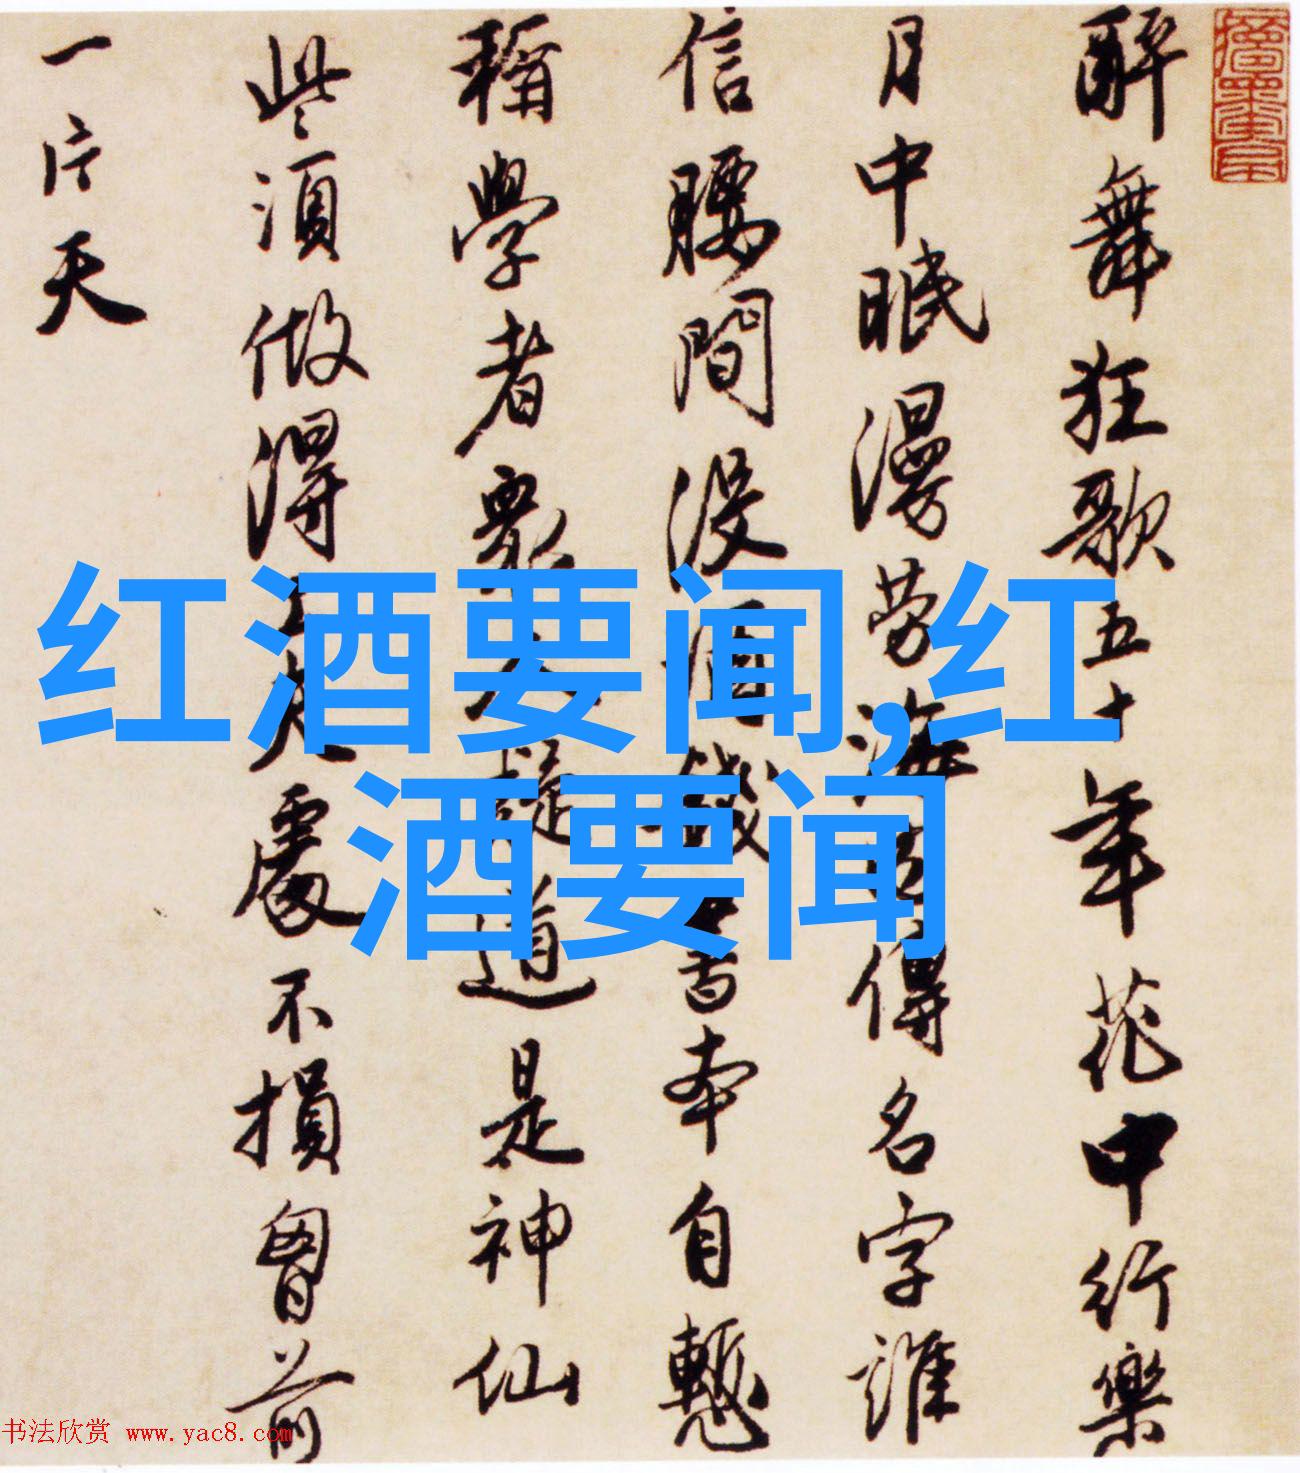 醉舞狂歌五十年花中行樂
月中眠漫勞海內得名字誰
信腰間沒酒錢書本自慙
稱學者眾人疑道是神仙
些須做得工夫處不損胷前
一片天
红酒要闻,红
酒要闻
书法欣赏 www.yac8.com